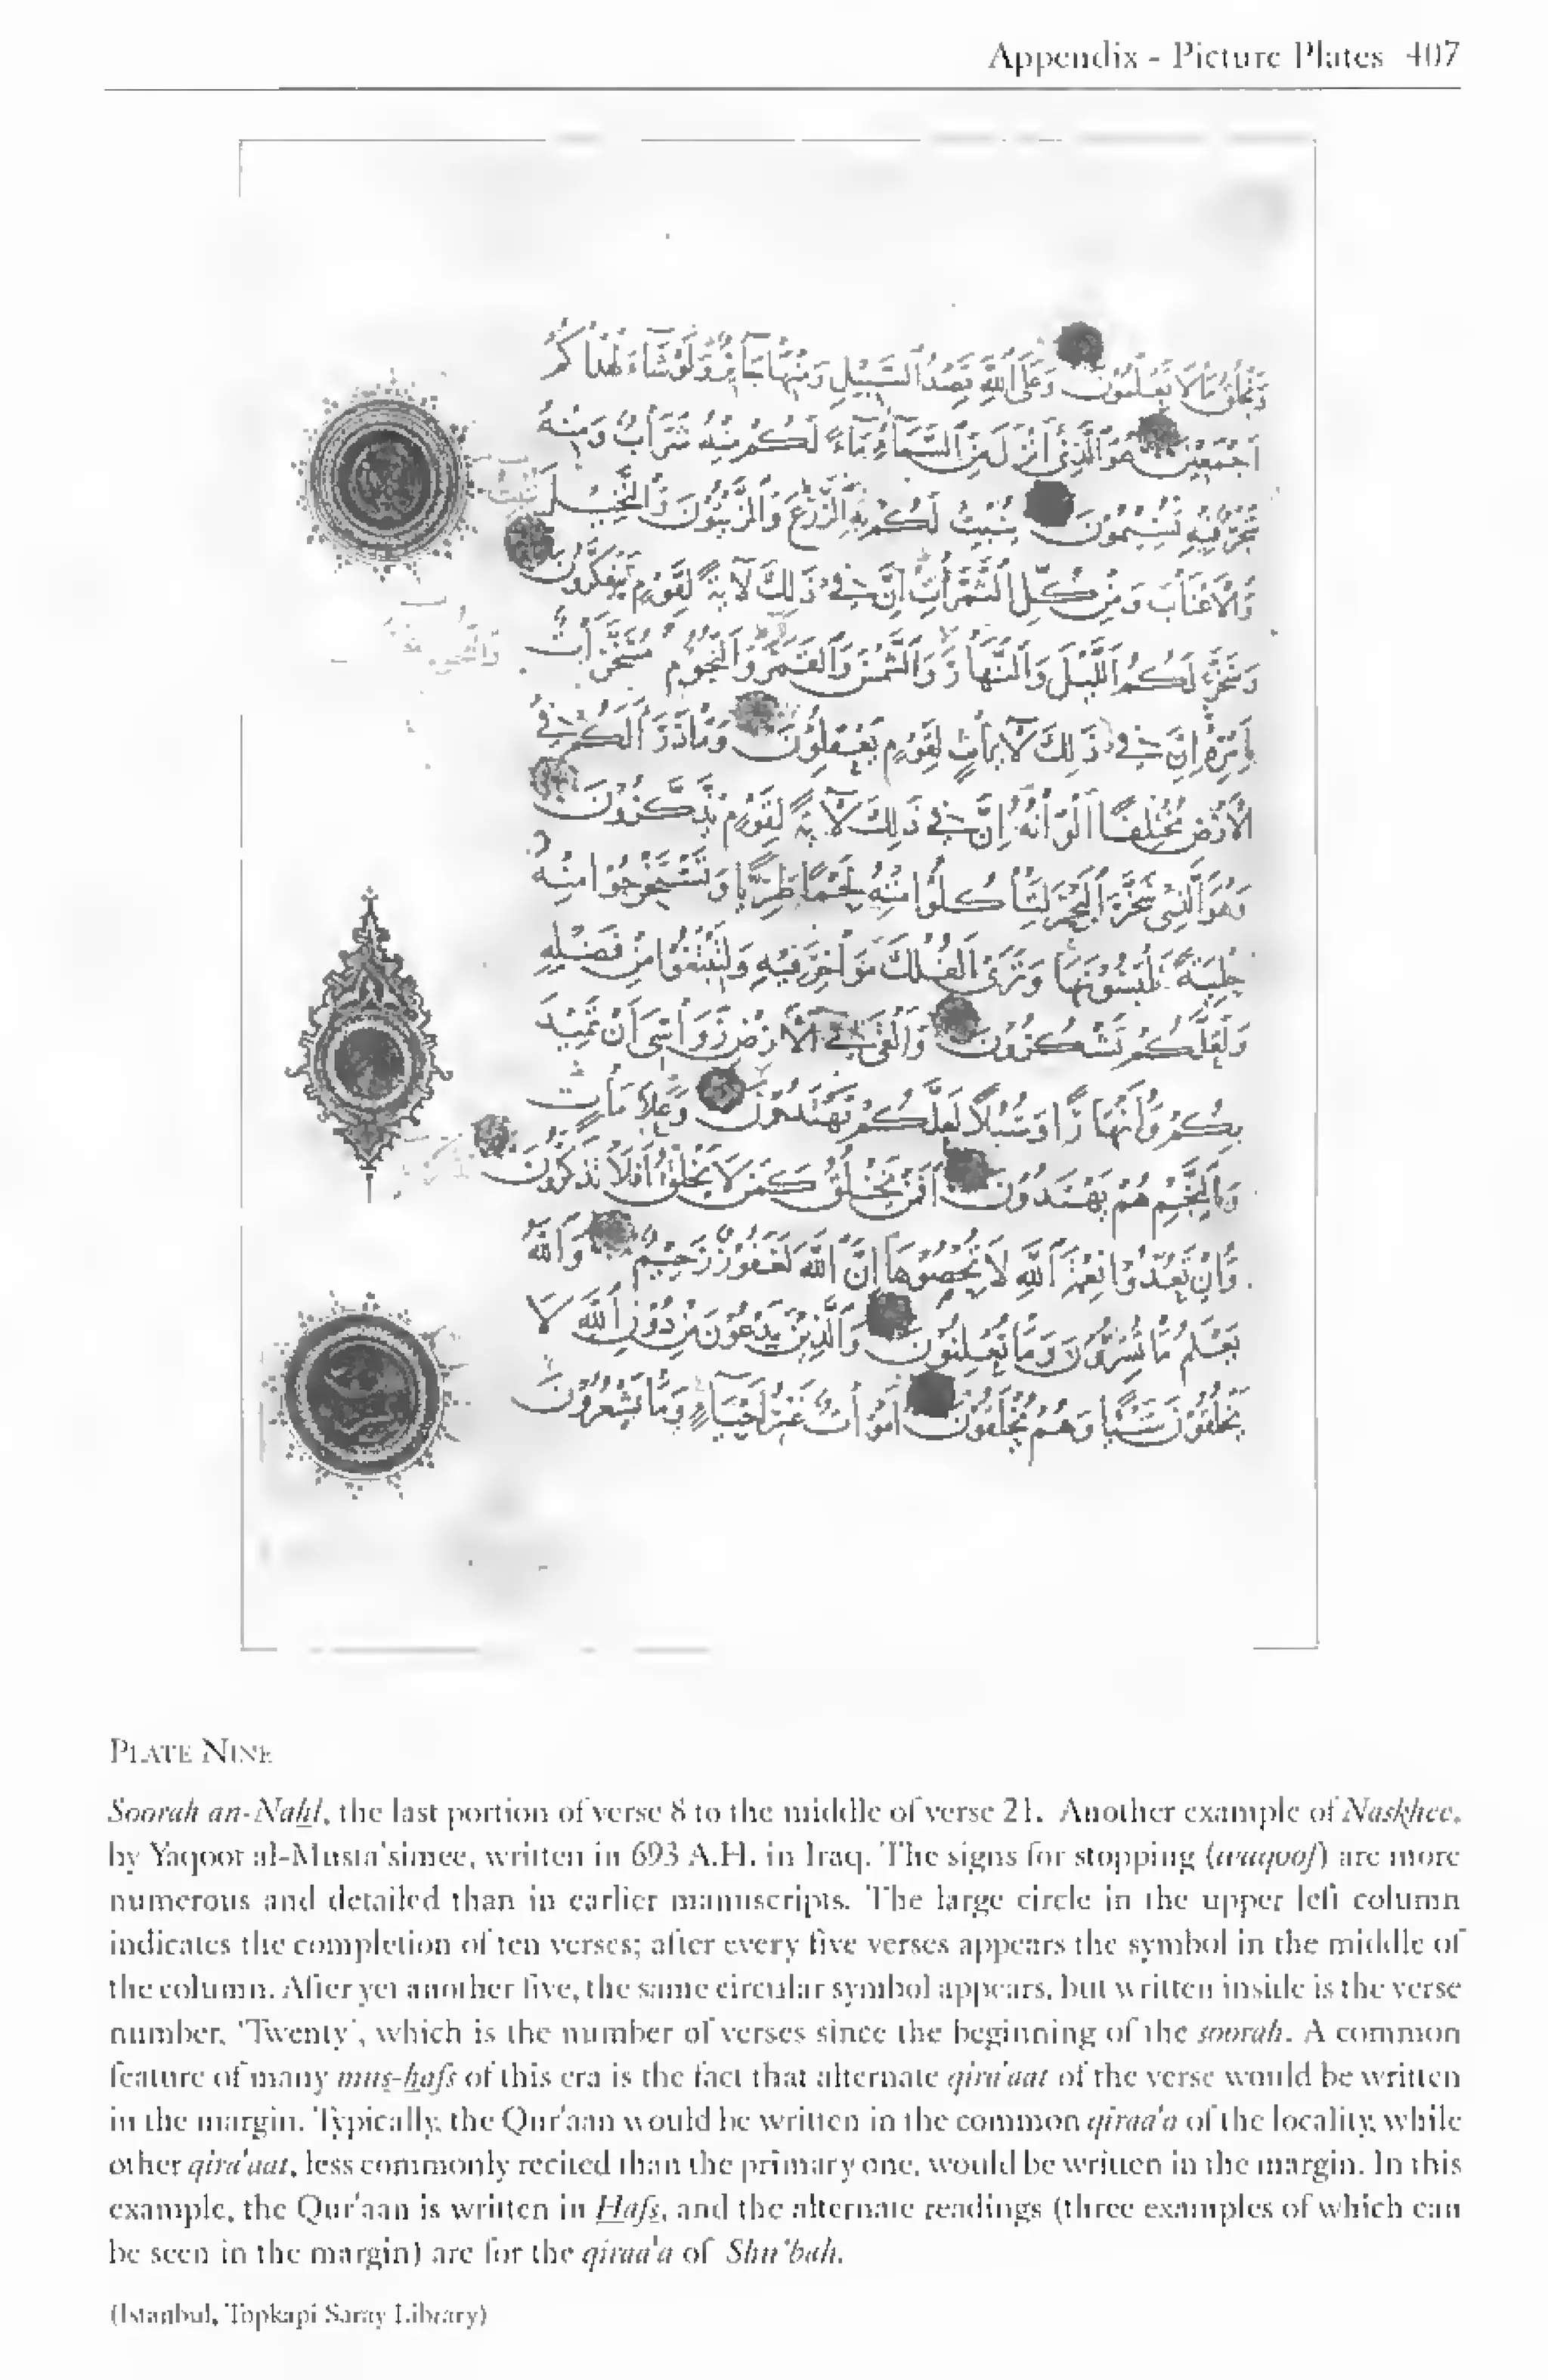 Appendix - Picture Plates 407
وَيَخْلُقُ مَا لَا تَعْلَمُونَ وَعَلَى اللَّهِ قَصْدُ السَّبِيلِ وَمِنْهَا جَائِرٌ وَلَوْ شَاءَ لَهَدَاكُمْ
أَجْمَعِينَ هُوَ الَّذِي أَنْزَلَ مِنَ السَّمَاءِ مَاءً لَكُمْ مِنْهُ شَرَابٌ وَمِنْهُ
شَجَرٌ فِيهِ تُسِيمُونَ يُنْبِتُ لَكُمْ بِهِ الزَّرْعَ وَالزَّيْتُونَ وَالنَّخِيلَ
وَالْأَعْنَابَ وَمِنْ كُلِّ الثَّمَرَاتِ إِنَّ فِي ذَلِكَ لَآيَةً لِقَوْمٍ يَتَفَكَّرُونَ
وَسَخَّرَ لَكُمُ اللَّيْلَ وَالنَّهَارَ وَالشَّمْسَ وَالْقَمَرَ وَالنُّجُومُ مُسَخَّرَاتٌ
بِأَمْرِهِ إِنَّ فِي ذَلِكَ لَآيَاتٍ لِقَوْمٍ يَعْقِلُونَ وَمَا ذَرَأَ لَكُمْ فِي
الْأَرْضِ مُخْتَلِفًا أَلْوَانُهُ إِنَّ فِي ذَلِكَ لَآيَةً لِقَوْمٍ يَذَّكَّرُونَ
وَهُوَ الَّذِي سَخَّرَ الْبَحْرَ لِتَأْكُلُوا مِنْهُ لَحْمًا طَرِيًّا وَتَسْتَخْرِجُوا مِنْهُ
حِلْيَةً تَلْبَسُونَهَا وَتَرَى الْفُلْكَ مَوَاخِرَ فِيهِ وَلِتَبْتَغُوا مِنْ فَضْلِهِ
وَلَعَلَّكُمْ تَشْكُرُونَ وَأَلْقَى فِي الْأَرْضِ رَوَاسِيَ أَنْ تَمِيدَ
بِكُمْ وَأَنْهَارًا وَسُبُلًا لَعَلَّكُمْ تَهْتَدُونَ وَعَلَامَاتٍ
وَبِالنَّجْمِ هُمْ يَهْتَدُونَ أَفَمَنْ يَخْلُقُ كَمَنْ لَا يَخْلُقُ أَفَلَا تَذَكَّرُونَ
وَإِنْ تَعُدُّوا نِعْمَةَ اللَّهِ لَا تُحْصُوهَا إِنَّ اللَّهَ لَغَفُورٌ رَحِيمٌ وَاللَّهُ
يَعْلَمُ مَا تُسِرُّونَ وَمَا تُعْلِنُونَ وَالَّذِينَ يَدْعُونَ مِنْ دُونِ اللَّهِ لَا
يَخْلُقُونَ شَيْئًا وَهُمْ يُخْلَقُونَ أَمْوَاتٌ غَيْرُ أَحْيَاءٍ وَمَا يَشْعُرُونَ
PLATE NINE
Soorah an-Nahl, the last portion of verse 8 to the middle of verse 21. Another example of Naskhee,
by Yaqoot al-Musta'simee, written in 693 A.H. in Iraq. The signs for stopping (waqoof) are more
numerous and detailed than in earlier manuscripts. The large circle in the upper left column
indicates the completion of ten verses; after every five verses appears the symbol in the middle of
the column. After yet another five, the same circular symbol appears, but written inside is the verse
number, 'Twenty', which is the number of verses since the beginning of the soorah. A common
feature of many mus-hafs of this era is the fact that alternate qira'aat of the verse would be written
in the margin. Typically, the Qur'aan would be written in the common qiraa'a of the locality, while
other qira'aat, less commonly recited than the primary one, would be written in the margin. In this
example, the Qur'aan is written in Hafs, and the alternate readings (three examples of which can
be seen in the margin) are for the qiraa'a of Shu'bah.
(Istanbul, Topkapi Saray Library)